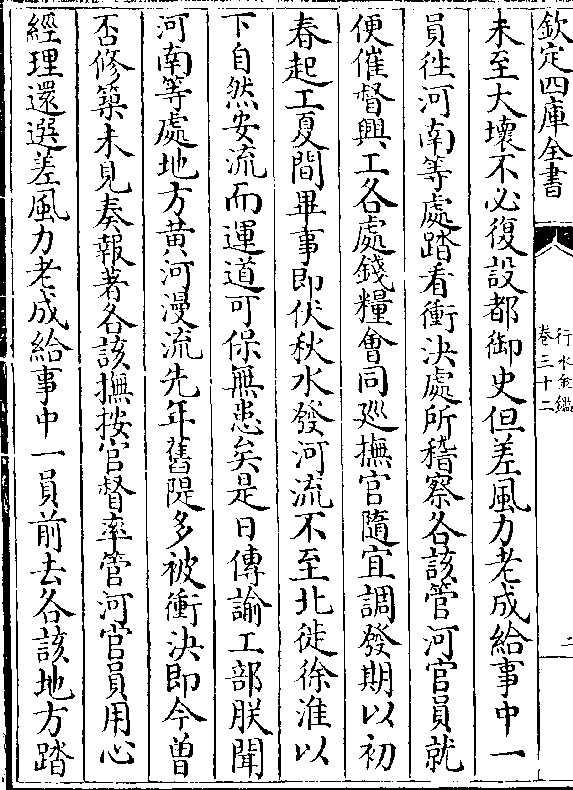 欽定四庫全書
行水金鑑
卷三十二
二
未至大壞不必復設都御史但差風力老成給事中一
員徃河南等處踏看衝決處所稽察各該管河官員就
便催督興工各處錢糧會同廵撫官隨宜調發期以初
春起工夏間畢事即伏秋水發河流不至北徙徐淮以
下自然安流而運道可保無患矣是日傳諭工部朕聞
河南等處地方黃河漫流先年舊隄多被衝決即今曾
否修築未見奏報著各該撫按官督率管河官員用心
經理還選差風力老成給事中一員前去各該地方踏